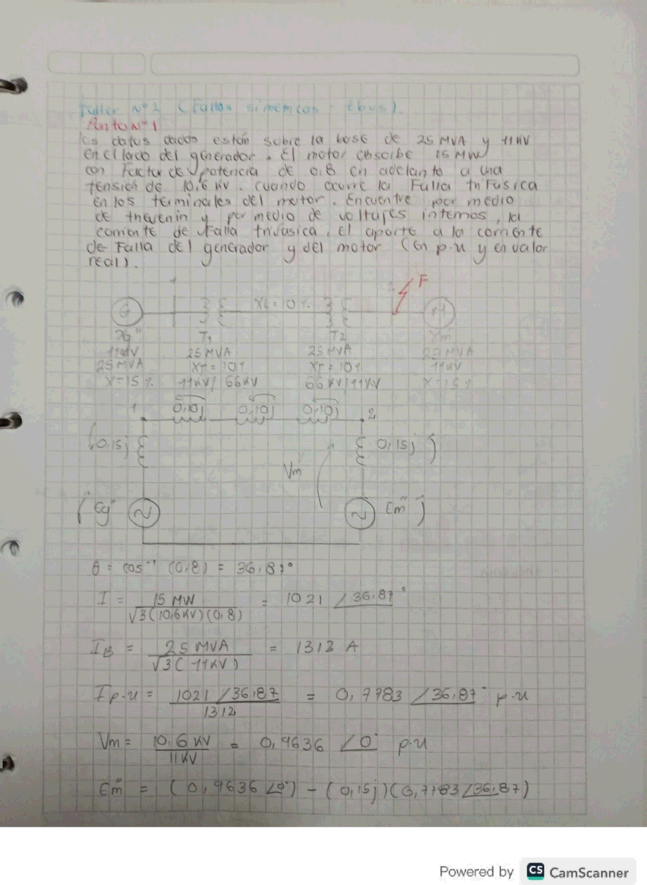 Taller N°2 (Fallas simetricas - Zbus).
Punto N°1
Los datos dados están sobre la base de 25 MVA y 11KV
En el lado del generador. El motor absorbe 15 MW
con Factor de potencia de 0.8 en adelanto a una
tensión de 10.6 KV. cuando ocurre la Falla trifasica
en los terminales del motor. Encuentre por medio
de thevenin y por medio de voltajes internos, la
corriente de Falla trifasica, el aporte a la corriente
de Falla del generador y del motor (en p.u y en valor
real).
1 2 F
G XL = 10% M
Xg" T1 T2 Xm"
11KV 25 MVA 25 MVA 25 MVA
25 MVA XT = 10% XT = 10% 11KV
X = 15% 11KV/66KV 66KV/11KV X = 15%
1 0,10j 0,10j 0,10j 2
0,15j 0,15j
Vm
Eg" Em"
θ = cos⁻¹ (0.8) = 36.87°
I = 15 MW / √3(10.6KV)(0.8) = 1021 ∠36.87°
IB = 25 MVA / √3(11KV) = 1312 A
Ip.u = 1021∠36.87 / 1312 = 0,7783 ∠36,87° p.u
Vm = 10.6 KV / 11KV = 0,9636 ∠0° p.u
Em" = (0,9636∠0°) - (0,15j)(0,7783∠36.87)
Powered by CS CamScanner